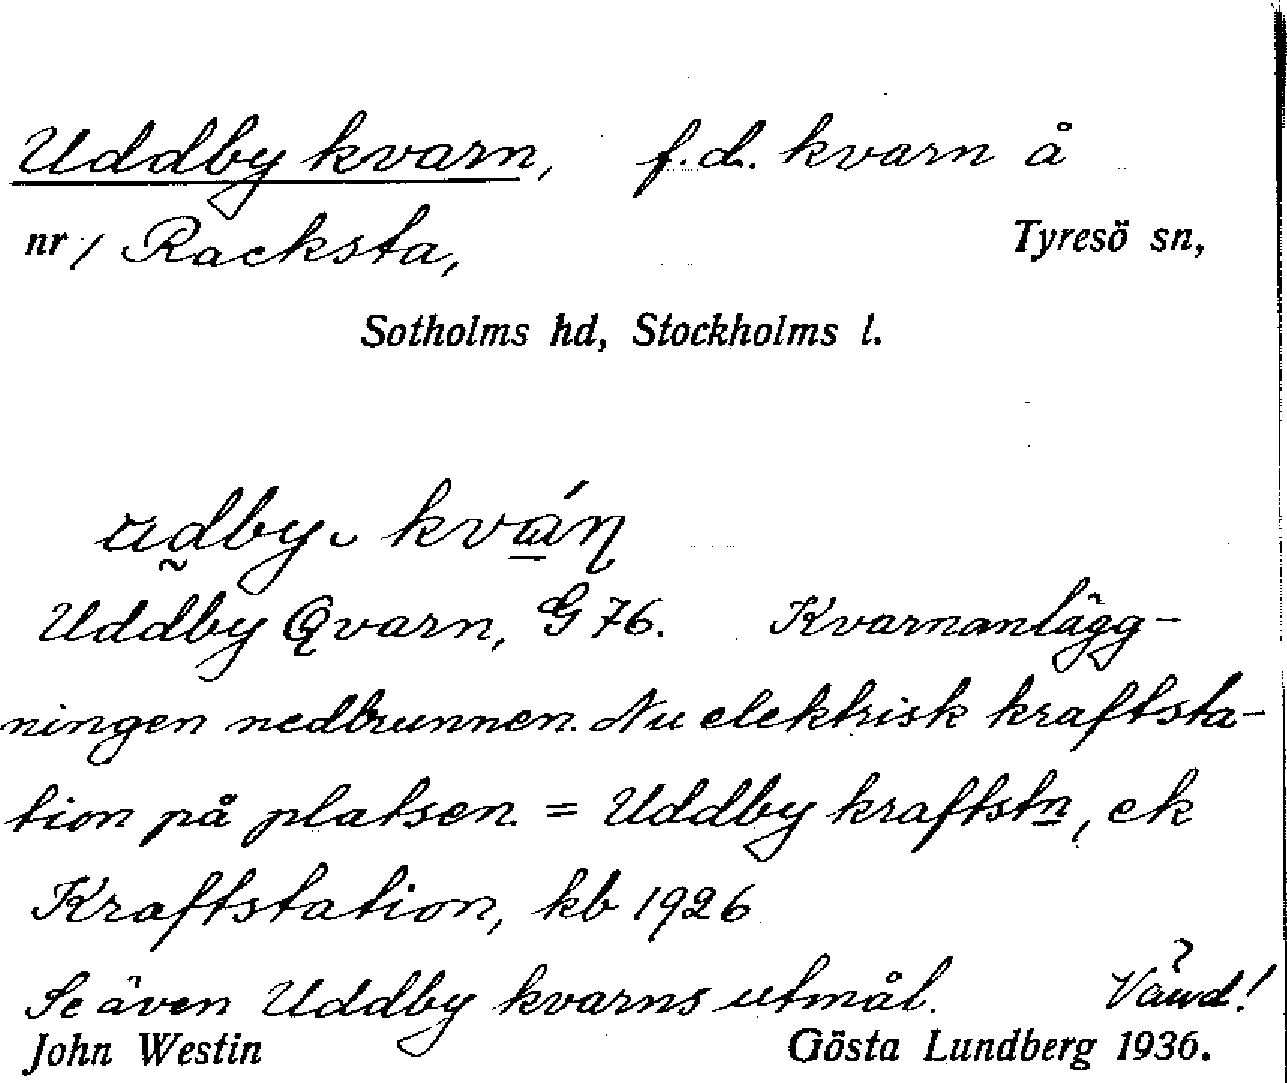 Uddby kvarn, f.d. kvarn å
nr 1 Racksta, Tyresö sn,
Sotholms hd, Stockholms l.
Uddby Qvarn, G 76. Kvarnanlägg-
ningen nedbrunnen. Nu elektrisk kraftsta-
tion på platsen. = Uddby kraftstn, ek
Kraftstation, kb 1926
Se även Uddby kvarns utmål. Vänd!
John Westin Gösta Lundberg 1936.